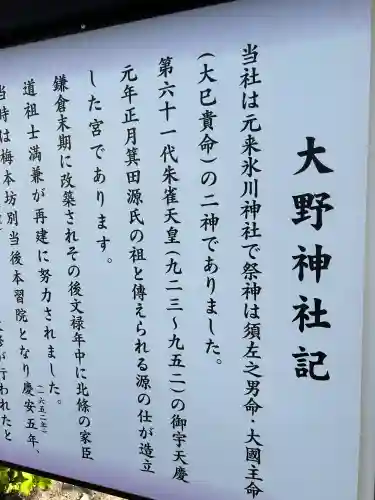 大野神社記
当社は元来氷川神社で祭神は須左之男命・大國主命
(大巳貴命)の二神でありました。
第六十一代朱雀天皇(九二三～九五二)の御宇天慶
元年正月箕田源氏の祖と傳えられる源の仕が造立
した宮であります。
鎌倉末期に改築されその後文禄年中に北條の家臣
道祖士満兼が再建に努力されました。
当時は梅本坊別当後本習院となり慶安五年、(一六五二年)
が行われたと